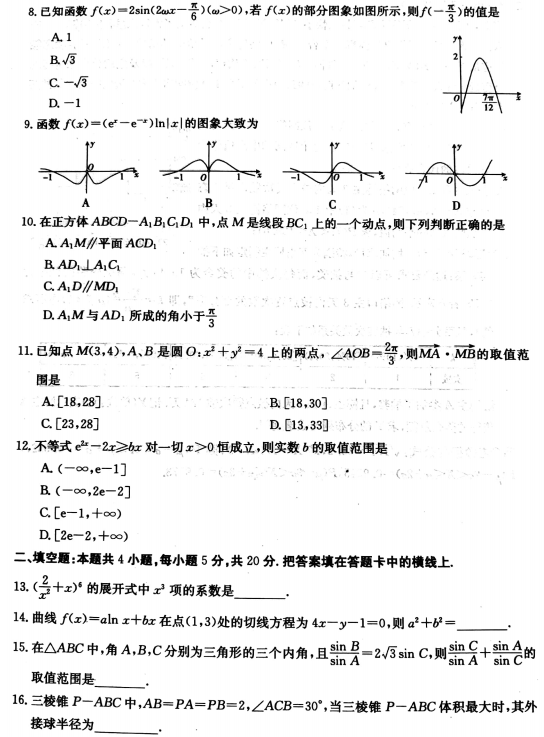 8. 已知函数 f(x)=2sin(2ωx-π/6)(ω>0),若 f(x)的部分图象如图所示,则f(-π/3)的值是
A. 1
B. √3
C. -√3
D. -1
y
2
O 7π/12 x
9. 函数 f(x)=(eˣ-e⁻ˣ)ln|x|的图象大致为
y y y y
-1 O 1 x -1 O 1 x -1 O 1 x -1 O 1 x
A B C D
10. 在正方体 ABCD-A₁B₁C₁D₁ 中,点 M 是线段 BC₁ 上的一个动点,则下列判断正确的是
A. A₁M∥平面 ACD₁
B. AD₁⊥A₁C₁
C. A₁D∥MD₁
D. A₁M 与 AD₁ 所成的角小于π/3
11. 已知点 M(3,4),A、B 是圆 O:x²+y²=4 上的两点,∠AOB=2π/3,则MA·MB的取值范
围是
A. [18,28] B. [18,30]
C. [23,28] D. [13,33]
12. 不等式 e²ˣ-2x≥bx 对一切 x>0 恒成立,则实数 b 的取值范围是
A. (-∞,e-1]
B. (-∞,2e-2]
C. [e-1,+∞)
D. [2e-2,+∞)
二、填空题:本题共 4 小题,每小题 5 分,共 20 分. 把答案填在答题卡中的横线上.
13. (2/x²+x)⁶ 的展开式中 x³ 项的系数是______.
14. 曲线 f(x)=aln x+bx 在点(1,3)处的切线方程为 4x-y-1=0,则 a²+b²=______.
15. 在△ABC 中,角 A,B,C 分别为三角形的三个内角,且sin B/sin A=2√3 sin C,则sin C/sin A+sin A/sin C的
取值范围是______.
16. 三棱锥 P-ABC 中,AB=PA=PB=2,∠ACB=30°,当三棱锥 P-ABC 体积最大时,其外
接球半径为______.